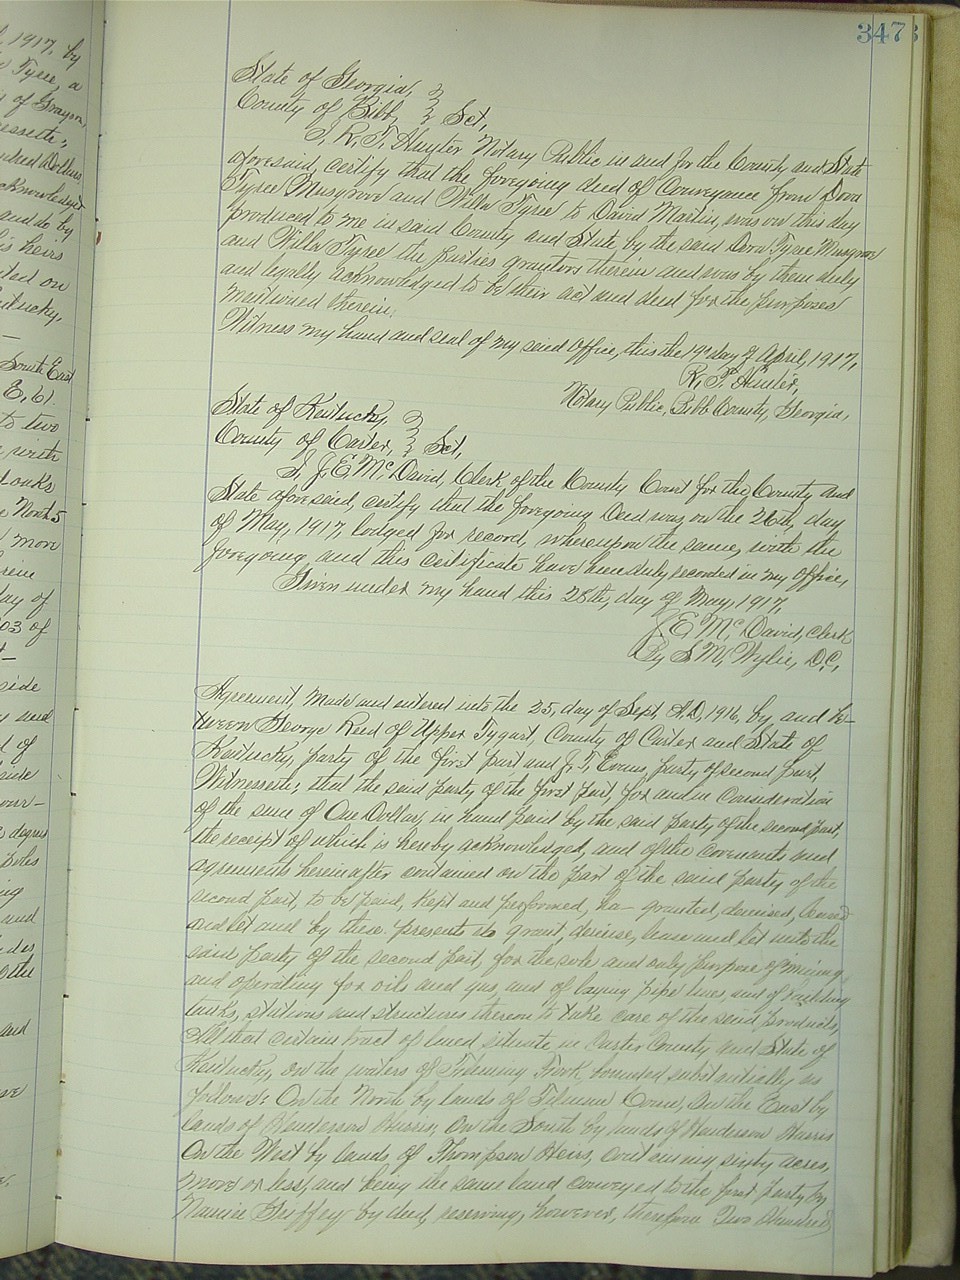 347
State of Georgia,
County of Bibb, Sct,
I, R. T. Hunter Notary Public in and for the County and State
aforesaid, certify that the foregoing deed of Conveyance from Dova
Tyree Musgrove and Willa Tyree to David Martin, was on this day
produced to me in said County and State by the said Dova Tyree Musgrove
and Willa Tyree the parties grantors therein and was by them duly
and legally acknowledged to be their act and deed for the purposes
mentioned therein,
Witness my hand and seal of my said Office, this the 19" day of April, 1917,
R, T. Hunter,
Notary Public, Bibb County, Georgia,
State of Kentucky,
County of Carter, Sct,
I, J. E. McDavid, Clerk of the County Court for the County and
State aforesaid, certify that the foregoing Deed was, on the 26th, day
of May, 1917, lodged for record, whereupon the same, with the
foregoing and this certificate have been duly recorded in my Office,
Given under my hand this 28th, day of May, 1917,
J. E. McDavid, Clerk
By S. M, Wylie, D.C,
Agreement, Made and entered into the 25, day of Sept, A, D, 1916, by and be-
tween George Reed of Upper Tygart, County of Carter and State of
Kentucky, party of the first part and J. T, Evans, party of second part,
Witnesseth; that the said party of the first part, for and in Consideration
of the sum of One Dollar, in hand paid by the said party of the second part,
the receipt of which is hereby acknowledged, and of the covenants and
agreements hereinafter contained on the part of the said party of the
second part, to be paid, kept and performed, ha- granted, demised, leased
and let and by these presents do grant, demise, lease and let unto the
said party of the second part, for the sole and only purpose of mining
and operating for oils and gas, and of laying pipe lines, and of building
tanks, stations and structures thereon to take care of the said products,
All that certain tract of land situate, in Carter County and State of
Kentucky, on the waters of Fork, bounded substantially as
follows: On the North by lands of, On the East by
lands of Henderson Harris, On the South by lands of Henderson Harris
On the West by lands of Thompson Heirs, containing sixty acres,
more or less, and being the same land conveyed to the first party by
Nannie Guffey by deed, reserving, however, therefrom Two Hundred,